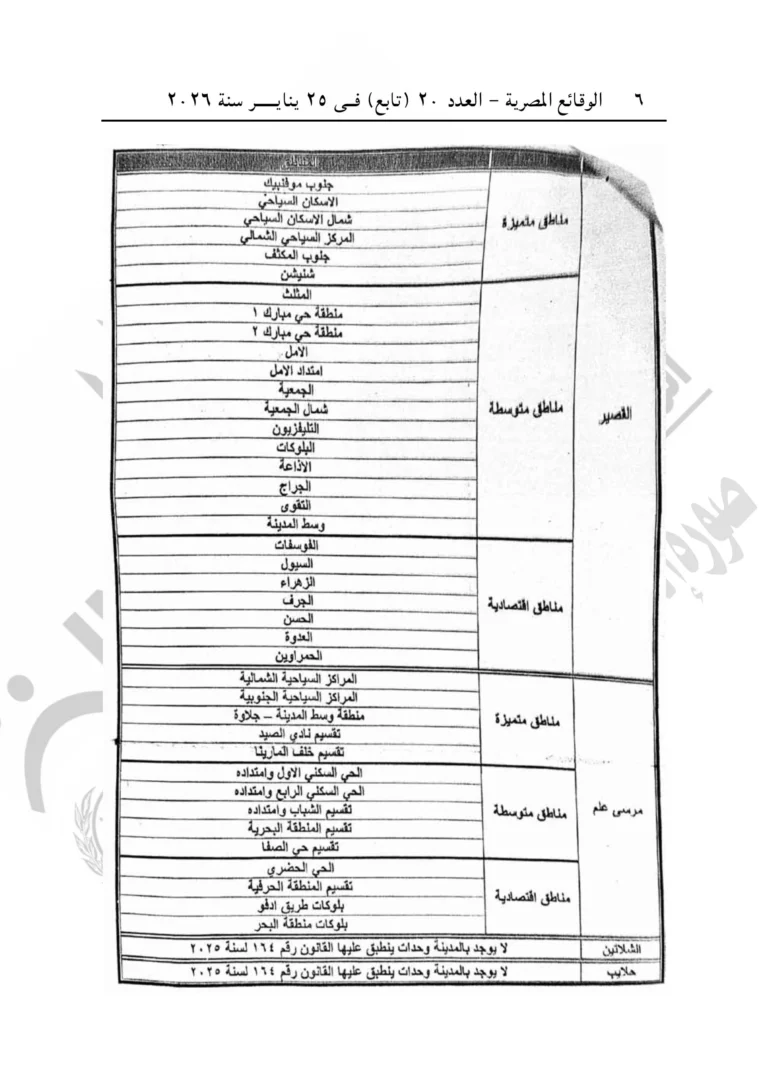 ٦ الوقائع المصرية – العدد ٢٠ (تابع) فى ٢٥ ينايـــر سنة ٢٠٢٦
المناطق
القصير
مناطق متميزة
جنوب موفنبيك
الاسكان السياحي
شمال الاسكان السياحي
المركز السياحي الشمالي
جنوب المكثف
شنيشن
مناطق متوسطة
المثلث
منطقة حي مبارك ١
منطقة حي مبارك ٢
الامل
امتداد الامل
الجمعية
شمال الجمعية
التليفزيون
البلوكات
الاذاعة
الجراج
التقوى
وسط المدينة
مناطق اقتصادية
الفوسفات
السيول
الزهراء
الجرف
الحسن
العدوة
الحمراوين
مرسى علم
مناطق متميزة
المراكز السياحية الشمالية
المراكز السياحية الجنوبية
منطقة وسط المدينة – جلاوة
تقسيم نادي الصيد
تقسيم خلف المارينا
مناطق متوسطة
الحي السكني الاول وامتداده
الحي السكني الرابع وامتداده
تقسيم الشباب وامتداده
تقسيم المنطقة البحرية
تقسيم حي الصفا
مناطق اقتصادية
الحي الحضري
تقسيم المنطقة الحرفية
بلوكات طريق ادفو
بلوكات منطقة البحر
الشلاتين لا يوجد بالمدينة وحدات ينطبق عليها القانون رقم ١٦٤ لسنة ٢٠٢٥
حلايب لا يوجد بالمدينة وحدات ينطبق عليها القانون رقم ١٦٤ لسنة ٢٠٢٥
صورة